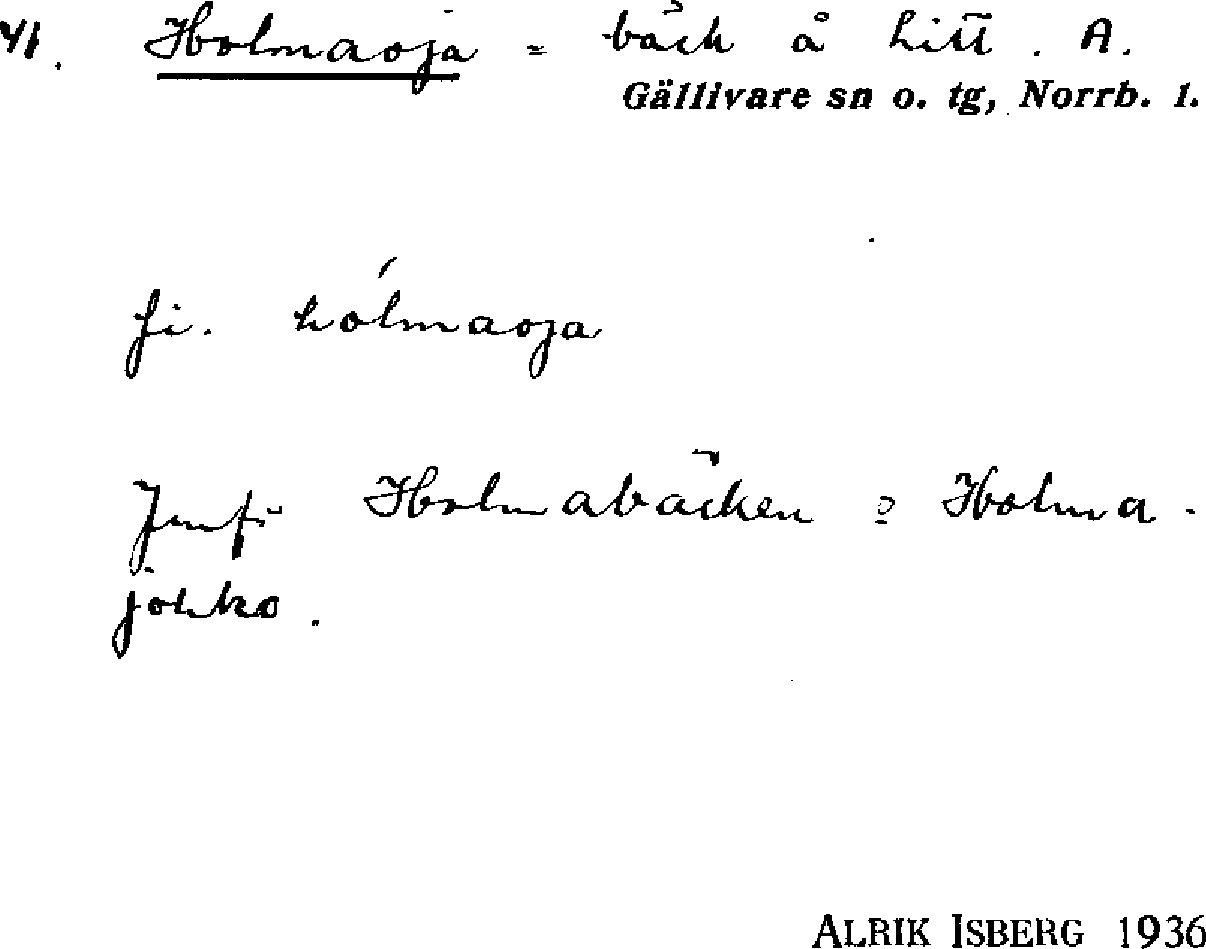 41. Holmaoja = bäck å Litt. A.
Gällivare sn o. tg, Norrb. l.
fi. hólmaoja
Jmf: Holmabäcken = Holma-
johko.
ALRIK ISBERG 1936